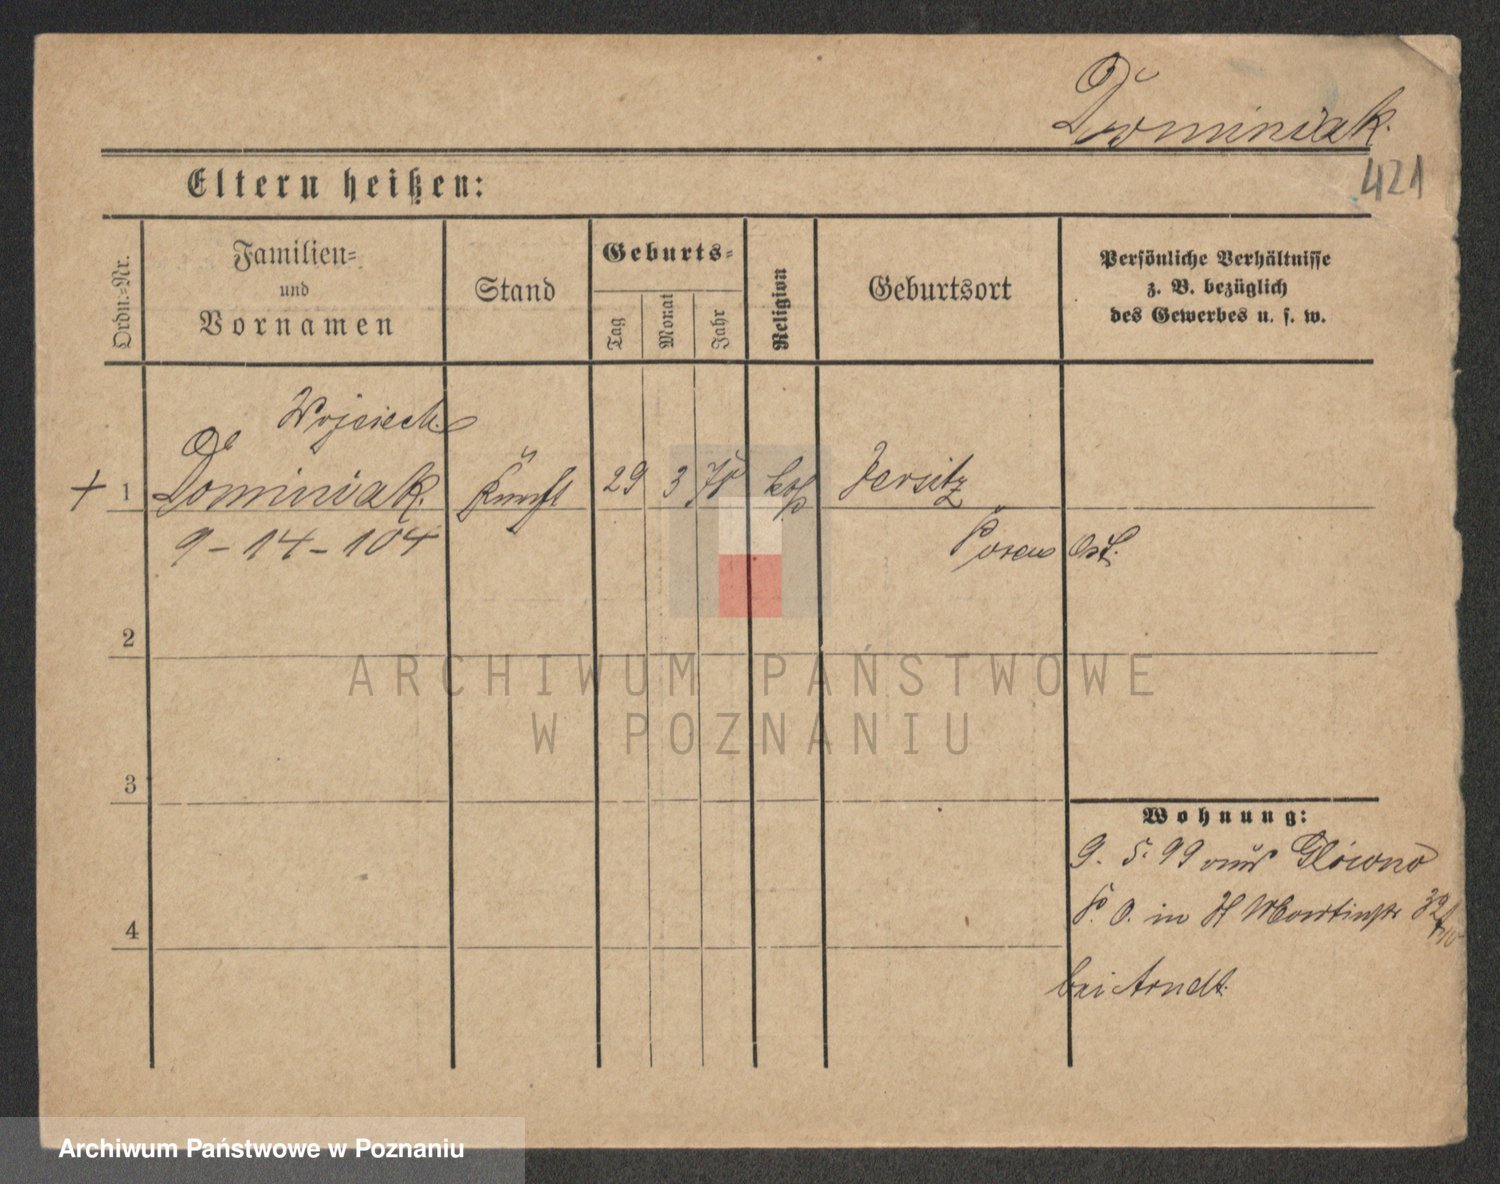 Dominiak.
421
Eltern heißen:
Ordn.-Nr.
Familien-
und
Vornamen
Stand
Geburts-
Tag
Monat
Jahr
Religion
Geburtsort
Persönliche Verhältnisse
z. B. bezüglich
des Gewerbes u. s. w.
Wojciech
+ 1 Dominiak. 29 3 kath Jersitz
9-14-104
Posen Ost.
2
3
4
Wohnung:
9. 5. 99 aus Glówno
P. O. in St Martinstr
bei Arndt.
ARCHIWUM PAŃSTWOWE
W POZNANIU
Archiwum Państwowe w Poznaniu